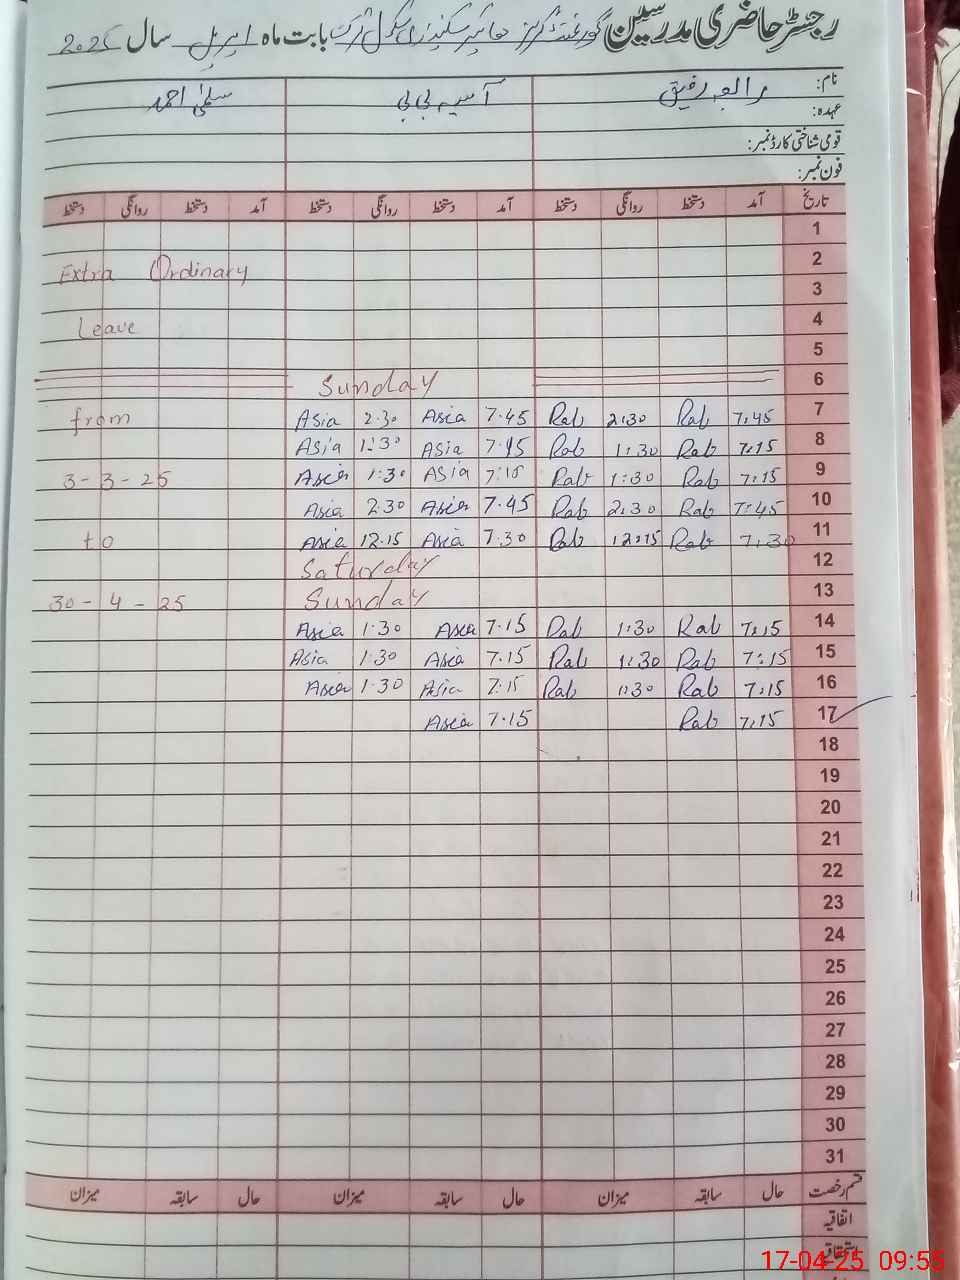 رجسٹر حاضری مدرسین گورنمنٹ گرلز ہائیر سیکنڈری سکول بابت ماہ اپریل سال 2025
نام: رابعہ رفیق آسیہ بی بی سلمیٰ احمد
عہدہ:
قومی شناختی کارڈ نمبر:
فون نمبر:
تاریخ آمد دستخط روانگی دستخط آمد دستخط روانگی دستخط آمد دستخط روانگی دستخط
1
Extra Ordinary 2
3
Leave 4
5
Sunday 6
from Asia 2:30 Asia 7.45 Rab 2:30 Rab 7:45 7
Asia 1:30 Asia 7.15 Rab 1:30 Rab 7:15 8
3-3-25 Asia 1:30 Asia 7:15 Rab 1:30 Rab 7:15 9
Asia 2.30 Asia 7.45 Rab 2:30 Rab 7:45 10
to Asia 12.15 Asia 7.30 Rab 12:15 Rab 7:30 11
Saturday 12
30-4-25 Sunday 13
Asia 1.30 Asia 7.15 Rab 1:30 Rab 7:15 14
Asia 1.30 Asia 7.15 Rab 1:30 Rab 7:15 15
Asia 1.30 Asia 7:15 Rab 1:30 Rab 7:15 16
Asia 7.15 Rab 7:15 17
18
19
20
21
22
23
24
25
26
27
28
29
30
31
قسم رخصت حال سابقہ میزان حال سابقہ میزان حال سابقہ میزان
اتفاقیہ
استحقاقیہ
17-04-25 09:55